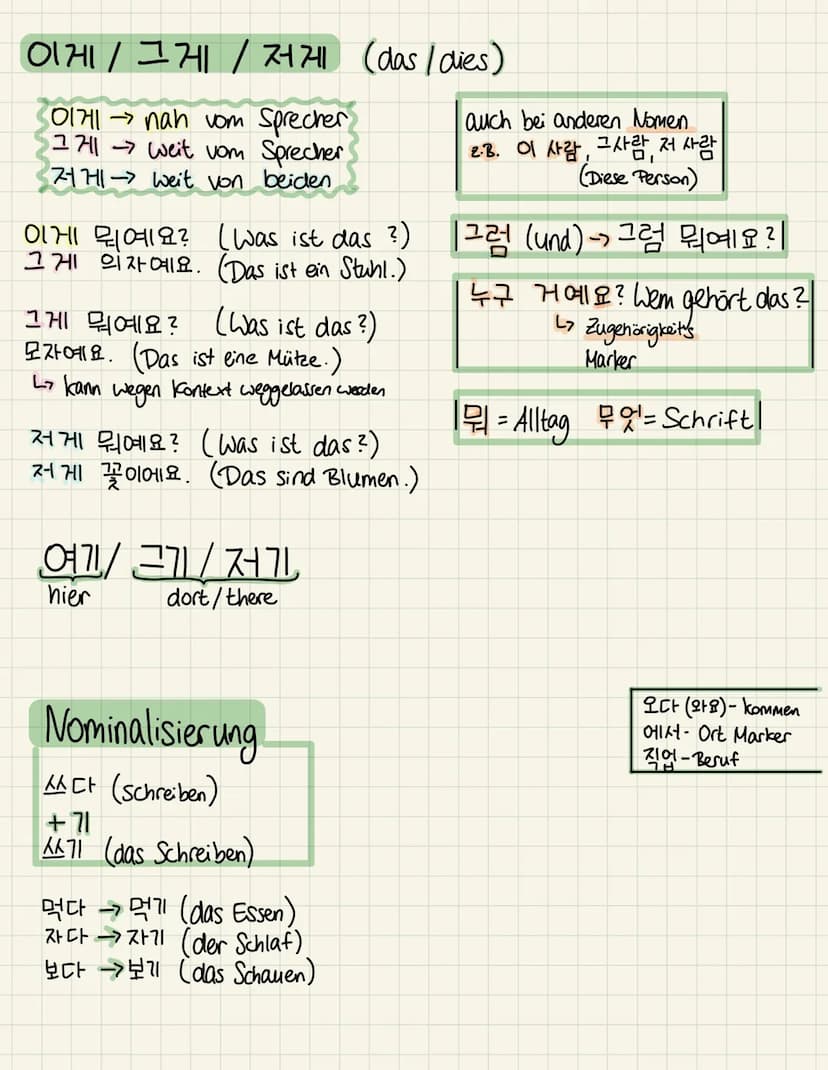 이게 / 그게 / 저게 (das / dies)
이게 → nah vom Sprecher
그게 → weit vom Sprecher
저게 → weit von beiden
auch bei anderen Nomen
z.B. 이 사람, 그사람, 저 사람
(Diese Person)
이게 뭐예요? (Was ist das ?)
그게 의자예요. (Das ist ein Stuhl.)
그럼 (und) → 그럼 뭐예요?
누구 거예요? Wem gehört das?
↳ Zugehörigkeits
Marker
그게 뭐예요? (Was ist das?)
모자예요. (Das ist eine Mütze.)
↳ kann wegen Kontext weggelassen werden
뭐 = Alltag 무엇 = Schrift
저게 뭐예요? (Was ist das?)
저게 꽃이에요. (Das sind Blumen.)
여기 / 그기 / 저기
hier dort / there
Nominalisierung
쓰다 (schreiben)
+ 기
쓰기 (das Schreiben)
먹다 → 먹기 (das Essen)
자다 → 자기 (der Schlaf)
보다 → 보기 (das Schauen)
오다 (와요) - kommen
에서 - Ort Marker
직업 - Beruf